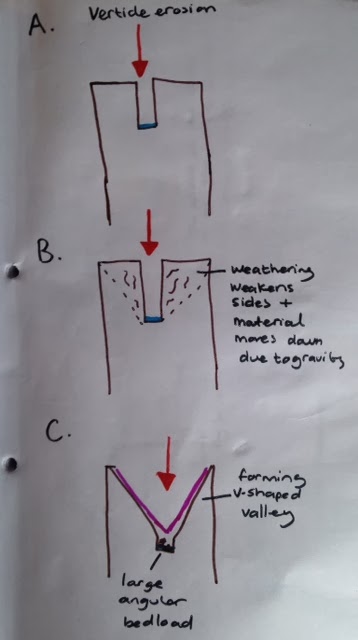 A.
Verticle erosion
B.
weathering
weakens
sides +
material
moves down
due to gravity
C.
forming
V-shaped
valley
large
angular
bedload